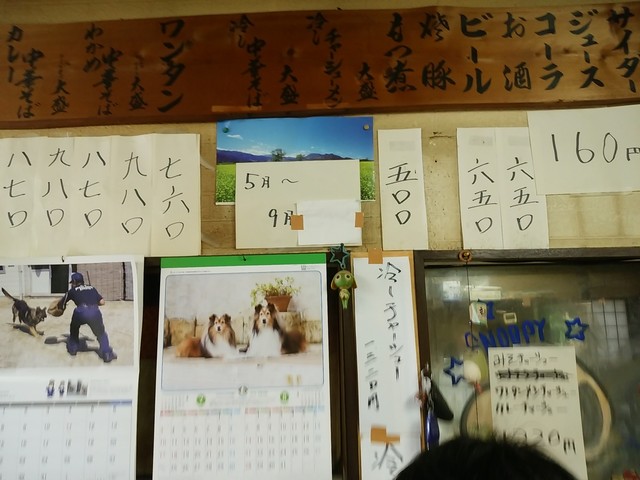 サイダー
ジュース
コーラ
お酒
ビール
焼豚
もつ煮
大盛
冷しチャーシューメン
大盛
冷し中華そば
ワンタン
大盛
わかめ中華そば
大盛
カレー中華そば
160円
六五〇
六五〇
五〇〇
5月〜
9月
七六〇
九八〇
八七〇
九八〇
八七〇
冷しチャーシュー
SNOOPY
みそチャーシュー
カレーチャーシュー
1020円